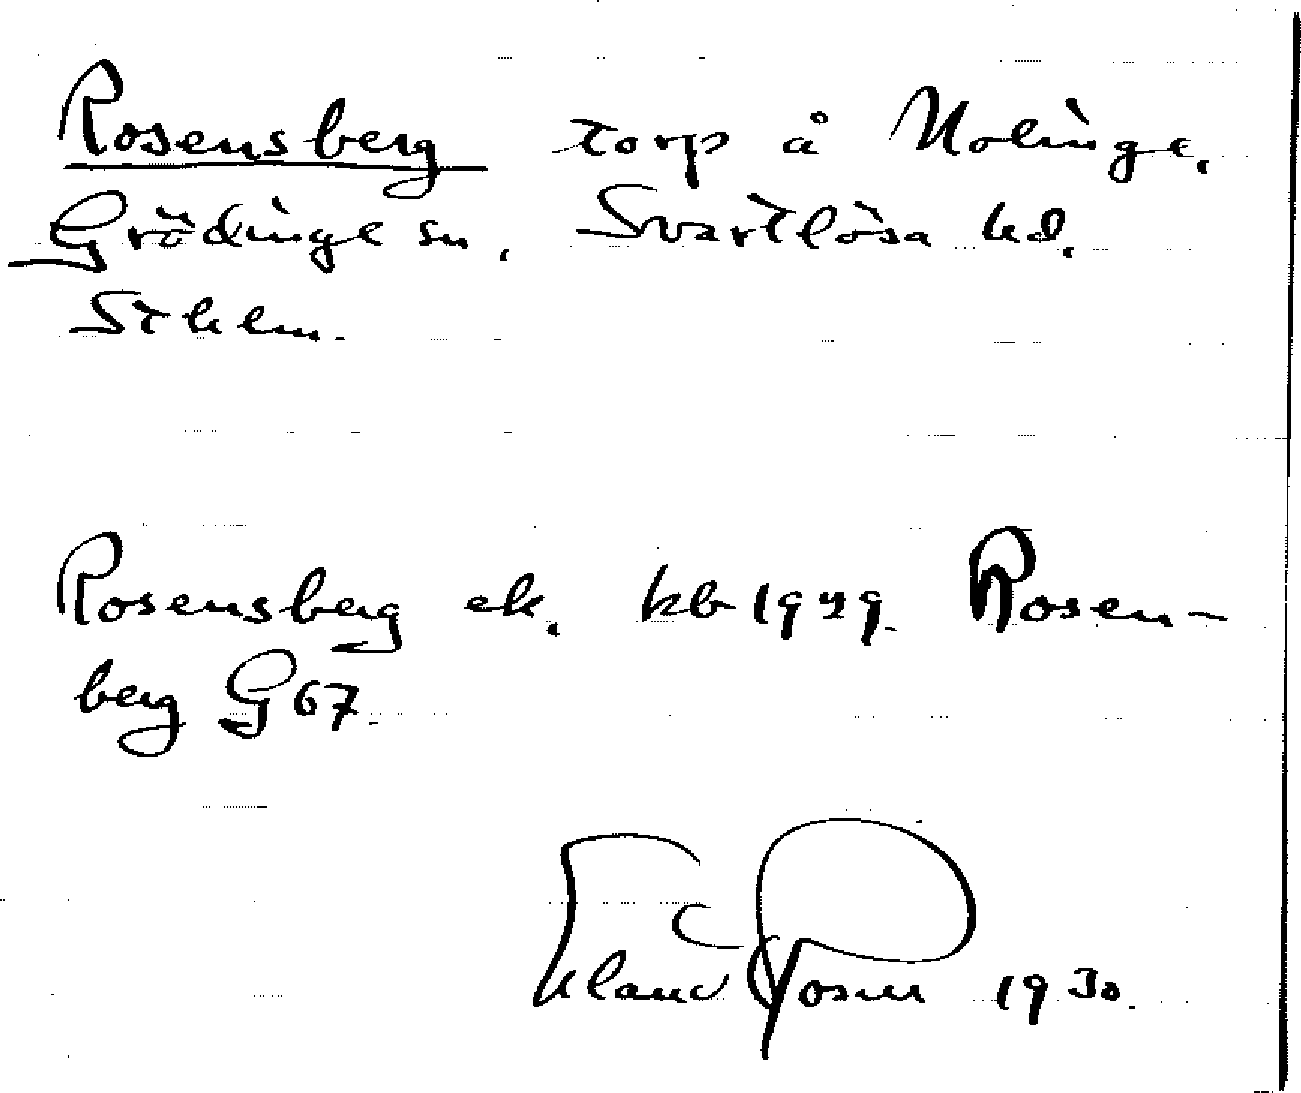 Rosensberg torp å Nolinge.
Grödinge sn. Svartlösa hd.
Sthlm.
Rosensberg ek. kb 1929. Rosen-
berg G 67.
Rosen 1930.